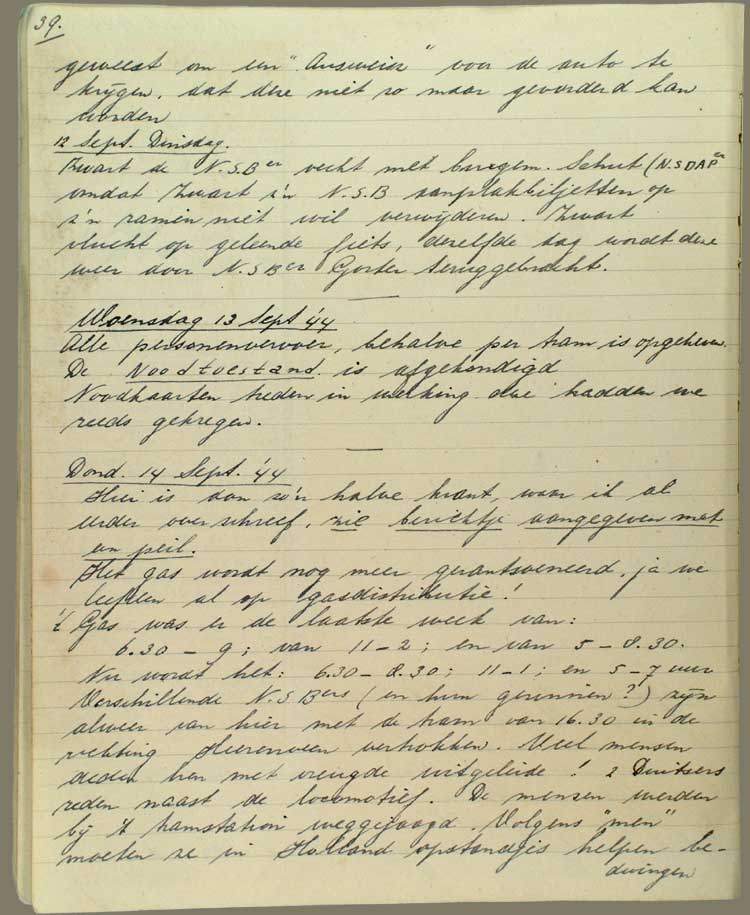 39.
geweest om een "Ausweisz" voor de auto te
krijgen, dat deze niet zo maar gevorderd kan
worden
12 Sept. Dinsdag.
Zwart de N.S.Ber vecht met burgem. Schut (N.SDAPer
omdat Zwart z'n N.S.B aanplakbiljetten op
z'n ramen niet wil verwijderen. Zwart
vlucht op geleende fiets, dezelfde dag wordt deze
weer door N.SBer Gorter teruggebracht.
Woensdag 13 Sept '44
Alle personenvervoer, behalve per tram is opgeheven.
De Noodtoestand is afgekondigd
Noodkaarten treden in werking die hadden we
reeds gekregen.
Dond. 14 Sept. '44
Hier is dan zo'n halve krant, waar ik al
eerder over schreef, zie berichtje aangegeven met
een peil.
Het gas wordt nog meer gerantsoeneerd, ja we
leefden al op gasdistributie!
't Gas was er de laatste week van:
6.30 - 9; van 11-2; en van 5-8.30.
Nu wordt het: 6.30-8.30; 11-1; en 5-7 uur
Verschillende N.SBers (en hun gezinnen?) zijn
alweer van hier met de tram van 16.30 in de
richting Heerenveen vertrokken. Veel mensen
deden hen met vreugde uitgeleide! 2 Duitsers
reden naast de locomotief. De mensen werden
bij 't tramstation weggejaagd. Volgens "men"
moeten ze in Holland opstandjes helpen be-
dwingen